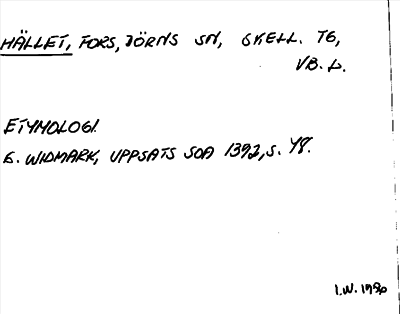 HÄLLET, FORS, JÖRNS SN, SKELL. TG,
VB. L.
ETYMOLOGI.
G. WIDMARK, UPPSATS SOA 1392, S. 48.
I.W. 1980